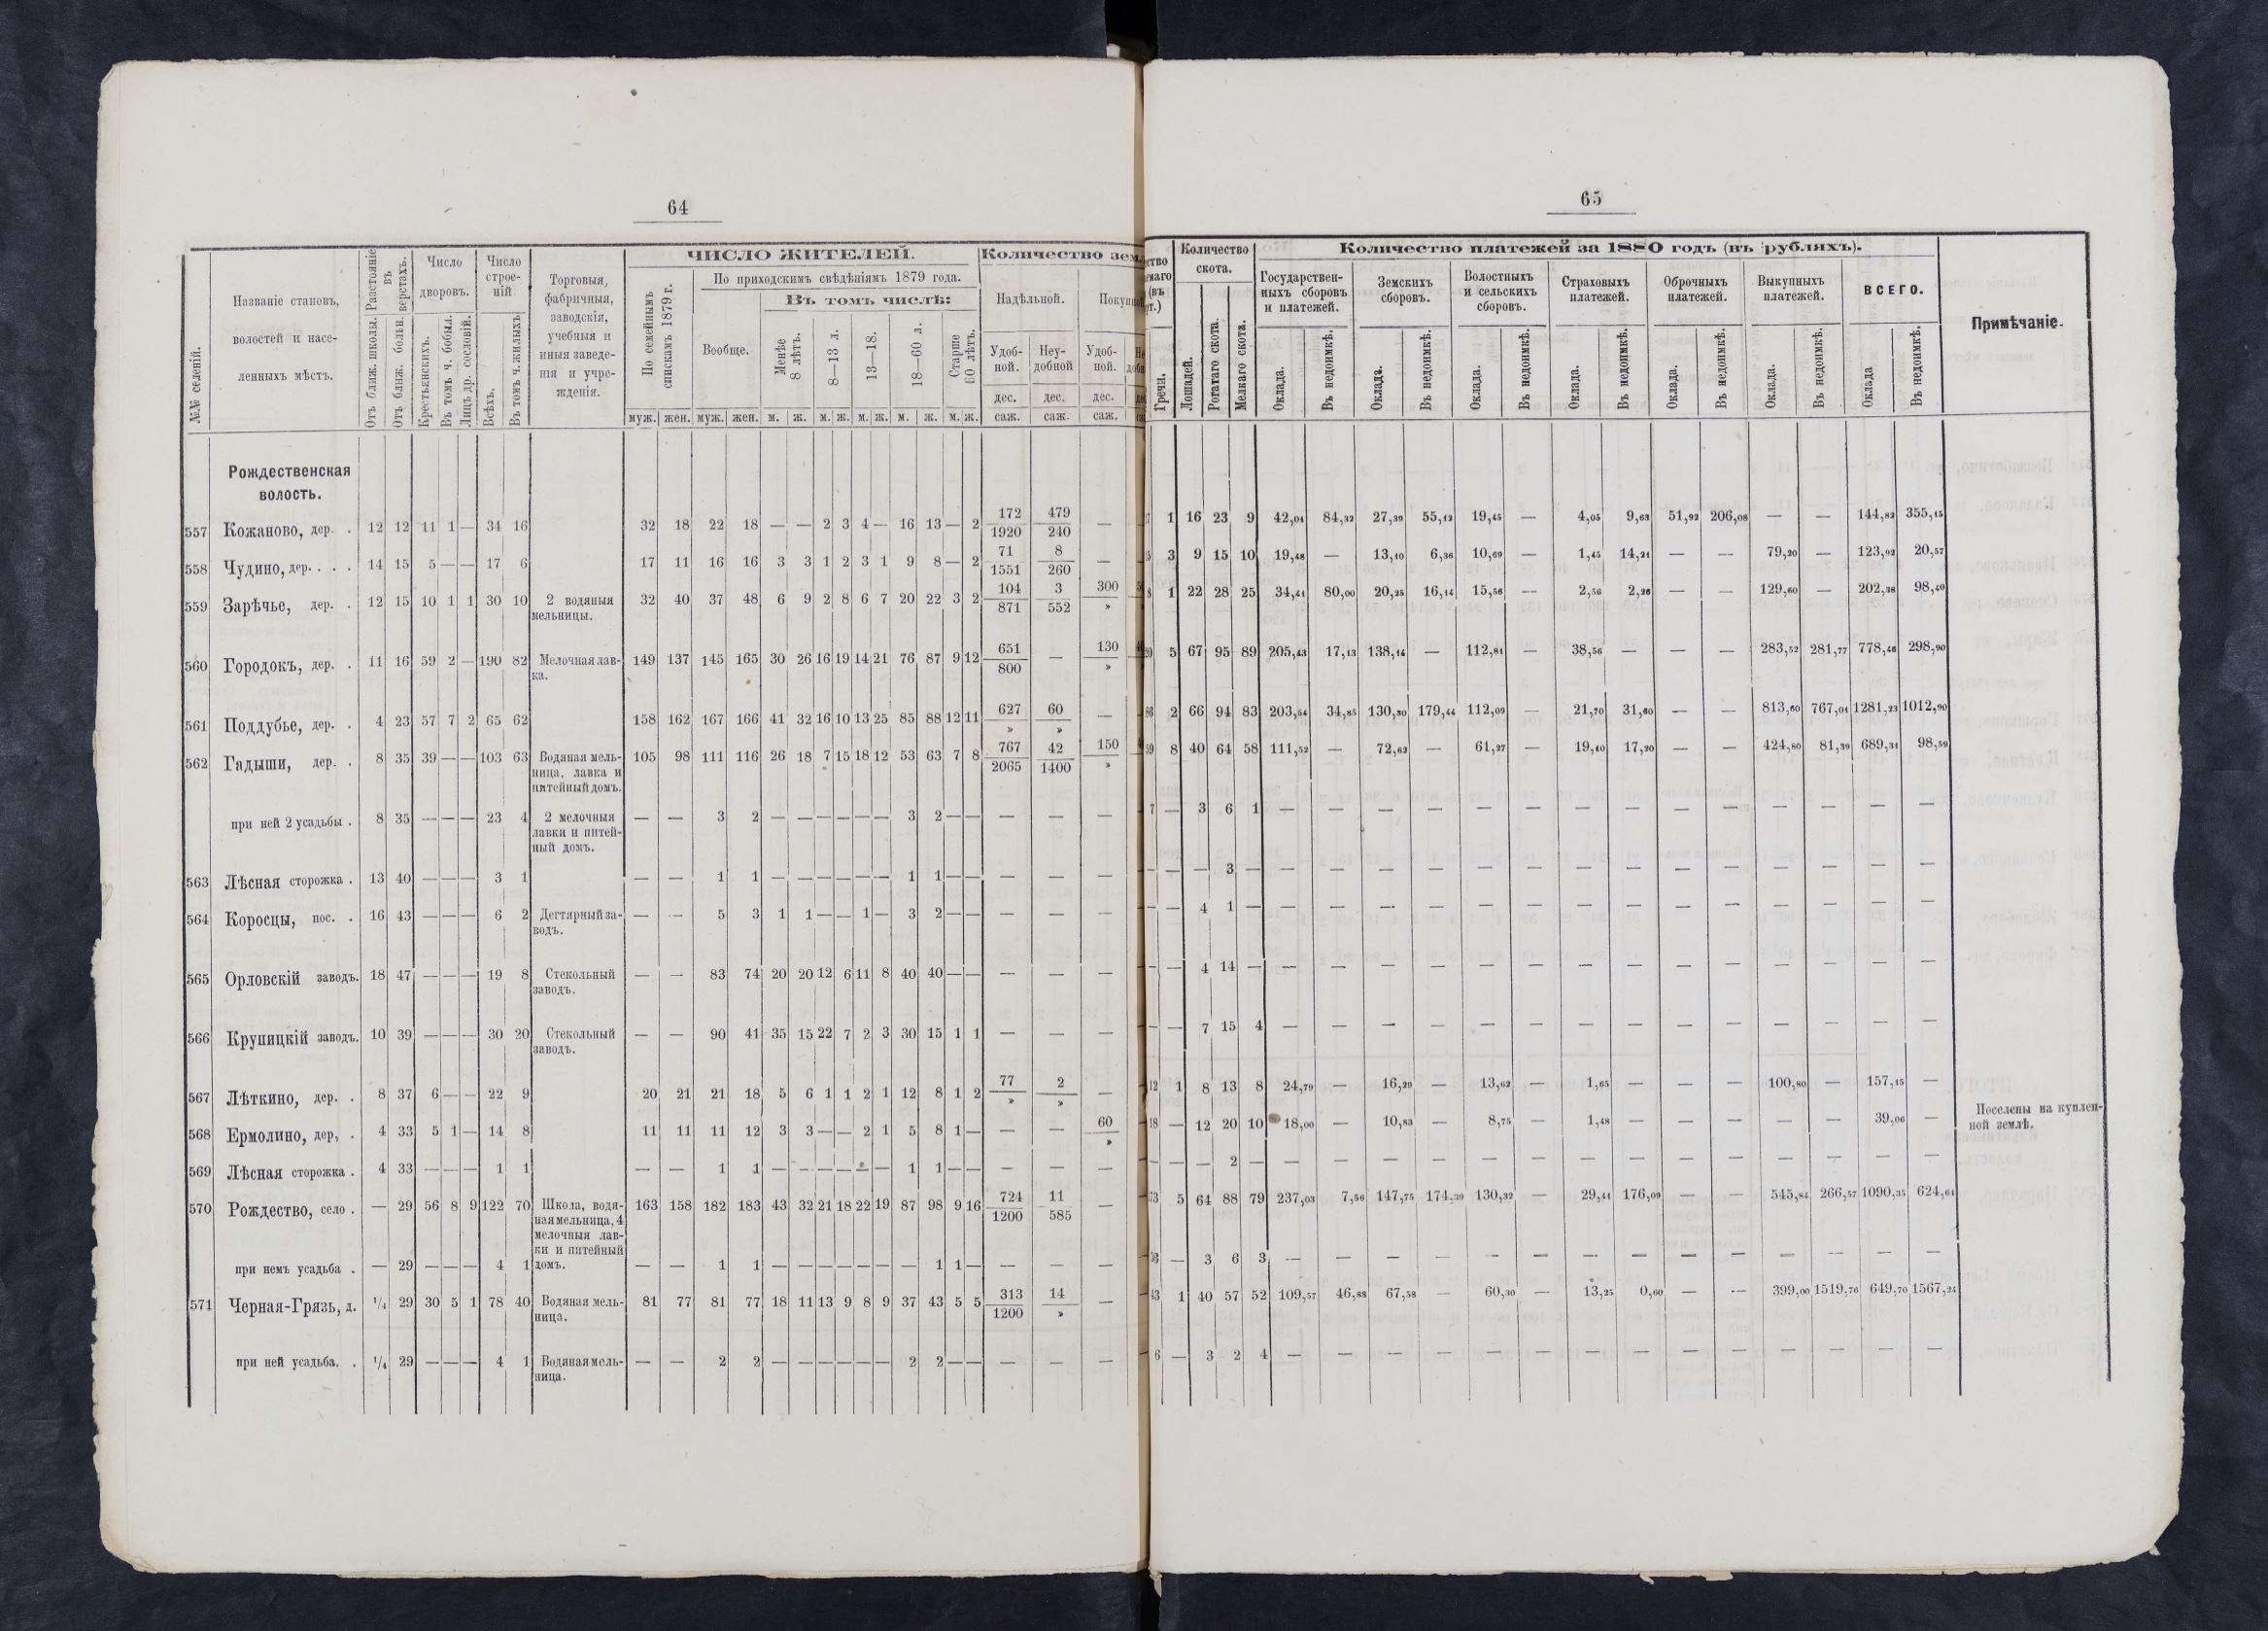 64
№№ селеній.
Названіе становъ, волостей и населенныхъ мѣстъ.
Разстояніе въ верстахъ.
Отъ ближ. школы.
Отъ ближ. больн.
Число дворовъ.
Крестьянскихъ.
Въ томъ ч. бобыл.
Лицъ др. сословій.
Число строеній
Всѣхъ.
Въ томъ ч. жилыхъ
Торговыя, фабричныя, заводскія, учебныя и иныя заведенія и учрежденія.
ЧИСЛО ЖИТЕЛЕЙ.
По семейнымъ спискамъ 1879 г.
По приходскимъ свѣдѣніямъ 1879 года.
Вообще.
Въ томъ числѣ:
Менѣе 8 лѣтъ.
8—13 л.
13—18.
18—60 л.
Старше 60 лѣтъ.
муж. жен. муж. жен. м. ж. м. ж. м. ж. м. ж. м. ж.
Количество зем
Надѣльной.
Удобной.
Неудобной
Покупной
Удобной.
дес. дес. дес.
саж. саж. саж.
Рожественская
волость.
557 Кожаново, дер. . 12 12 11 1 — 34 16 32 18 22 18 — — 2 3 4 — 16 13 — 2 172/1920 479/240 —
558 Чудино, дер. . . . 14 15 5 — — 17 6 17 11 16 16 3 3 1 2 3 1 9 8 — 2 71/1551 8/260 —
559 Зарѣчье, дер. . 12 15 10 1 1 30 10 2 водяныя мельницы. 32 40 37 48 6 9 2 8 6 7 20 22 3 2 104/871 3/552 300/»
560 Городокъ, дер. . 11 16 59 2 — 190 82 Мелочная лавка. 149 137 145 165 30 26 16 19 14 21 76 87 9 12 651/800 — 130/»
561 Поддубье, дер. . 4 23 57 7 2 65 62 158 162 167 166 41 32 16 10 13 25 85 88 12 11 627/» 60/» —
562 Гадыши, дер. . 8 35 39 — — 103 63 Водяная мельница, лавка и питейный домъ. 105 98 111 116 26 18 7 15 18 12 53 63 7 8 767/2065 42/1400 150/»
при ней 2 усадьбы . 8 35 — — — 23 4 2 мелочныя лавки и питейный домъ. — — 3 2 — — — — — — 3 2 — — — — —
563 Лѣсная сторожка . 13 40 — — — 3 1 — — 1 1 — — — — — — 1 1 — — — — —
564 Коросцы, пос. . 16 43 — — — 6 2 Дегтярный заводъ. — — 5 3 1 1 — — 1 — 3 2 — — — — —
565 Орловскій заводъ. 18 47 — — — 19 8 Стекольный заводъ. — — 83 74 20 20 12 6 11 8 40 40 — — — — —
566 Крупицкій заводъ. 10 39 — — — 30 20 Стекольный заводъ. — — 90 41 35 15 22 7 2 3 30 15 1 1 — — —
567 Лѣткино, дер. . 8 37 6 — — 22 9 20 21 21 18 5 6 1 1 2 1 12 8 1 2 77/» 2/» —
568 Ермолино, дер, . 4 33 5 1 — 14 8 11 11 11 12 3 3 — — 2 1 5 8 1 — — — 60/»
569 Лѣсная сторожка . 4 33 — — — 1 1 — — 1 1 — — — — — — 1 1 — — — — —
570 Рождество, село . — 29 56 8 9 122 70 Школа, водяная мельница, 4 мелочныя лавки и питейный домъ. 163 158 182 183 43 32 21 18 22 19 87 98 9 16 724/1200 11/585 —
при немъ усадьба . — 29 — — — 4 1 — — 1 1 — — — — — — — 1 1 — — — —
571 Черная-Грязь, д. 1/4 29 30 5 1 78 40 Водяная мельница. 81 77 81 77 18 11 13 9 8 9 37 43 5 5 313/1200 14/» —
при ней усадьба. . 1/4 29 — — — 4 1 Водяная мельница. — — 2 2 — — — — — — 2 2 — — — — —
65
Гречи.
Количество скота.
Лошадей.
Рогатаго скота.
Мелкаго скота.
Количество платежей за 1880 годъ (въ рубляхъ).
Государственныхъ сборовъ и платежей.
Земскихъ сборовъ.
Волостныхъ и сельскихъ сборовъ.
Страховыхъ платежей.
Оброчныхъ платежей.
Выкупныхъ платежей.
ВСЕГО.
Оклада. Въ недоимкѣ. Оклада. Въ недоимкѣ. Оклада. Въ недоимкѣ. Оклада. Въ недоимкѣ. Оклада. Въ недоимкѣ. Оклада. Въ недоимкѣ. Оклада Въ недоимкѣ.
Примѣчаніе.
1 16 23 9 42,04 84,32 27,39 55,12 19,45 — 4,05 9,63 51,92 206,08 — — 144,82 355,15
3 9 15 10 19,48 — 13,10 6,36 10,69 — 1,45 14,21 — — 79,20 — 123,92 20,57
1 22 28 25 34,41 80,00 20,25 16,14 15,56 — 2,56 2,26 — — 129,60 — 202,38 98,40
5 67 95 89 205,43 17,13 138,14 — 112,81 — 38,56 — — — 283,52 281,77 778,46 298,90
2 66 94 83 203,54 34,85 130,30 179,44 112,09 — 21,70 31,60 — — 813,60 767,01 1281,23 1012,90
8 40 64 58 111,52 — 72,62 — 61,27 — 19,40 17,20 — — 424,80 81,39 689,31 98,59
7 — 3 6 1 — — — — — — — — — — — — — —
— — — 3 — — — — — — — — — — — — — — —
— — 4 1 — — — — — — — — — — — — — — —
— — 4 14 — — — — — — — — — — — — — — —
— — 7 15 4 — — — — — — — — — — — — — —
12 1 8 13 8 24,79 — 16,29 — 13,62 — 1,65 — — — 100,80 — 157,15 —
18 — 12 20 10 18,00 — 10,83 — 8,75 — 1,48 — — — — — 39,06 — Поселены на купленной землѣ.
— — — 2 — — — — — — — — — — — — — — —
5 64 88 79 237,03 7,56 147,75 174,39 130,32 — 29,41 176,09 — — 545,84 266,57 1090,35 624,61
— 3 6 3 — — — — — — — — — — — — — —
1 40 57 52 109,57 46,88 67,58 — 60,30 — 13,25 0,60 — — 399,00 1519,76 649,70 1567,24
6 — 3 2 4 — — — — — — — — — — — — — —